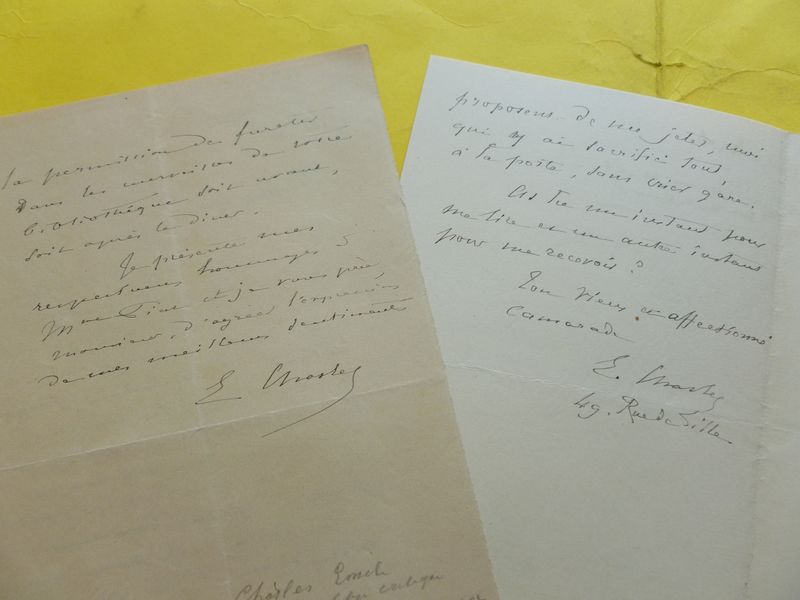 la permission de fureter
dans les merveilles de votre
bibliothèque soit avant,
soit après le diner.
Je présente mes
respectueux hommages à
Mme et je vous prie,
monsieur, d'agréer l'expression
de mes meilleurs sentiments
E Charles
Charles
proposent de me jeter, moi
qui y ai sacrifié tout,
à la porte, sans crier gare.
As tu un instant pour
me lire et un autre instant
pour me recevoir?
Ton vieux et affectionné
camarade
E. Charles
49. Rue de Lille